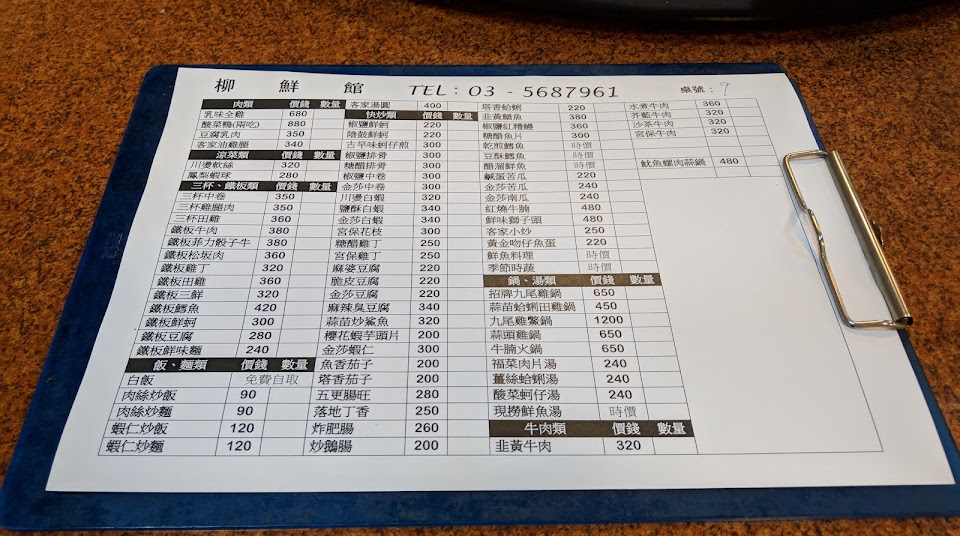 柳鮮館 TEL：03 - 5687961 桌號：7
肉類 價錢 數量
乳味全雞 680
酸菜鴨(兩吃) 880
豆腐乳肉 350
客家油雞腿 340
涼菜類 價錢 數量
川燙軟絲 350
鳳梨蝦球 280
三杯、鐵板類 價錢 數量
三杯中卷 350
三杯雞腿肉 350
三杯田雞 360
鐵板牛肉 380
鐵板菲力骰子牛 380
鐵板松坂肉 360
鐵板雞丁 320
鐵板田雞 360
鐵板三鮮 320
鐵板鱈魚 420
鐵板鮮蚵 300
鐵板豆腐 280
鐵板鮮味麵 240
飯、麵類 價錢 數量
白飯 免費自取
肉絲炒飯 90
肉絲炒麵 90
蝦仁炒飯 120
蝦仁炒麵 120
客家湯圓 400
快炒類 價錢 數量
椒鹽鮮蚵 220
陰鼓鮮蚵 220
古早味蚵仔煎 300
椒鹽排骨 300
糖醋排骨 300
椒鹽中卷 300
金莎中卷 300
川燙白蝦 320
鹽酥白蝦 340
金莎白蝦 340
宮保花枝 300
糖醋雞丁 250
宮保雞丁 250
麻婆豆腐 220
脆皮豆腐 220
金莎豆腐 220
麻辣臭豆腐 340
蒜苗炒鯊魚 320
櫻花蝦芋頭片 200
金莎蝦仁 300
魚香茄子 200
塔香茄子 200
五更腸旺 280
落地丁香 250
炸肥腸 260
炒鵝腸 200
塔香蛤蜊 220
韭黃鱔魚 380
椒鹽紅糟鰻 360
糖醋魚片 300
乾煎鱈魚 時價
豆酥鱈魚 時價
醋溜鮮魚 時價
鹹蛋苦瓜 220
金莎苦瓜 240
金莎南瓜 240
紅燒牛腩 480
鮮味獅子頭 480
客家小炒 250
黃金吻仔魚蛋 220
鮮魚料理 時價
季節時蔬 時價
鍋、湯類 價錢 數量
招牌九尾雞鍋 650
蒜苗蛤蜊田雞鍋 450
九尾雞鱉鍋 1200
蒜頭雞鍋 650
牛腩火鍋 650
福菜肉片湯 240
薑絲蛤蜊湯 240
酸菜蚵仔湯 240
現撈鮮魚湯 時價
牛肉類 價錢 數量
韭黃牛肉 320
水煮牛肉 360
芥藍牛肉 320
沙茶牛肉 320
宮保牛肉 320
魷魚螺肉蒜鍋 480